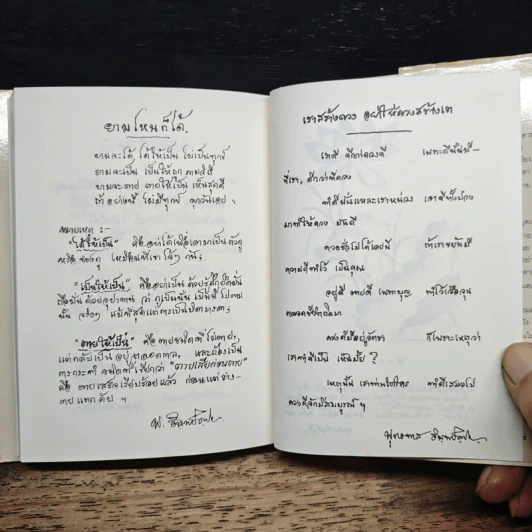 ยามไหนก็ได้.
ยามจะได้ ได้ให้เป็น ไม่เป็นทุกข์
ยามจะเป็น เป็นให้ถูก ตามวิถี
ยามจะตาย ตายให้เป็น เห็นสุดดี
ถ้าอย่างนี้ ไม่มีทุกข์ ทุกวันเอย ฯ
หมายเหตุ :-
"ได้ให้เป็น" คือ อย่าได้
"เป็นให้เป็น" คืออย่าเป็น ด้วย
ถือมั่น ด้วยอุปาทาน ว่า กูเป็นนั่น เป็นนี่ ไปตาม
นั้น จริงๆ
"ตายให้เป็น" คือ ตายชนิดที่ไม่ตาย,
แต่กลับเป็นอยู่ตลอดกาล, และต้องเป็น
การกระทำ ชนิดที่เรียกว่า "ตายเสียก่อนตาย"
คือ ตายเสร็จเรียบร้อยแล้ว ก่อนแต่ร่าง-
กาย แตกดับ ฯ
พ. อินทปัญโญ
เราสร้างดวง อย่าให้ดวงสร้างเรา
เราดี ดีกว่าดวงดี เพราะดีนั้นมี-
ที่เรา, ดีกว่าที่ดวง
ทำดีนั่นแหละเราหน่วง เอาดีทั้งปวง
มาทำให้ดวง มันดี
ดวงชั่วไม่ได้เลยนี่ ถ้าเราขยันมี
ความดีทำไว้ เป็นคุณ
อยู่ดี ตายดี เพราะบุญ ทำไว้เจือจุน
ตลอดชีวิตติดมา
ดวงดีมีอยู่อัตรา ก็เพราะเหตุว่า
เราทำดีเป็น เห็นมั้ย ?
เหตุนั้น เราท่านใดใคร่ ทำดีเสมอไป
ดวงดีจักมีสมบูรณ์ ฯ
พุทธทาส อินทปัญโญ